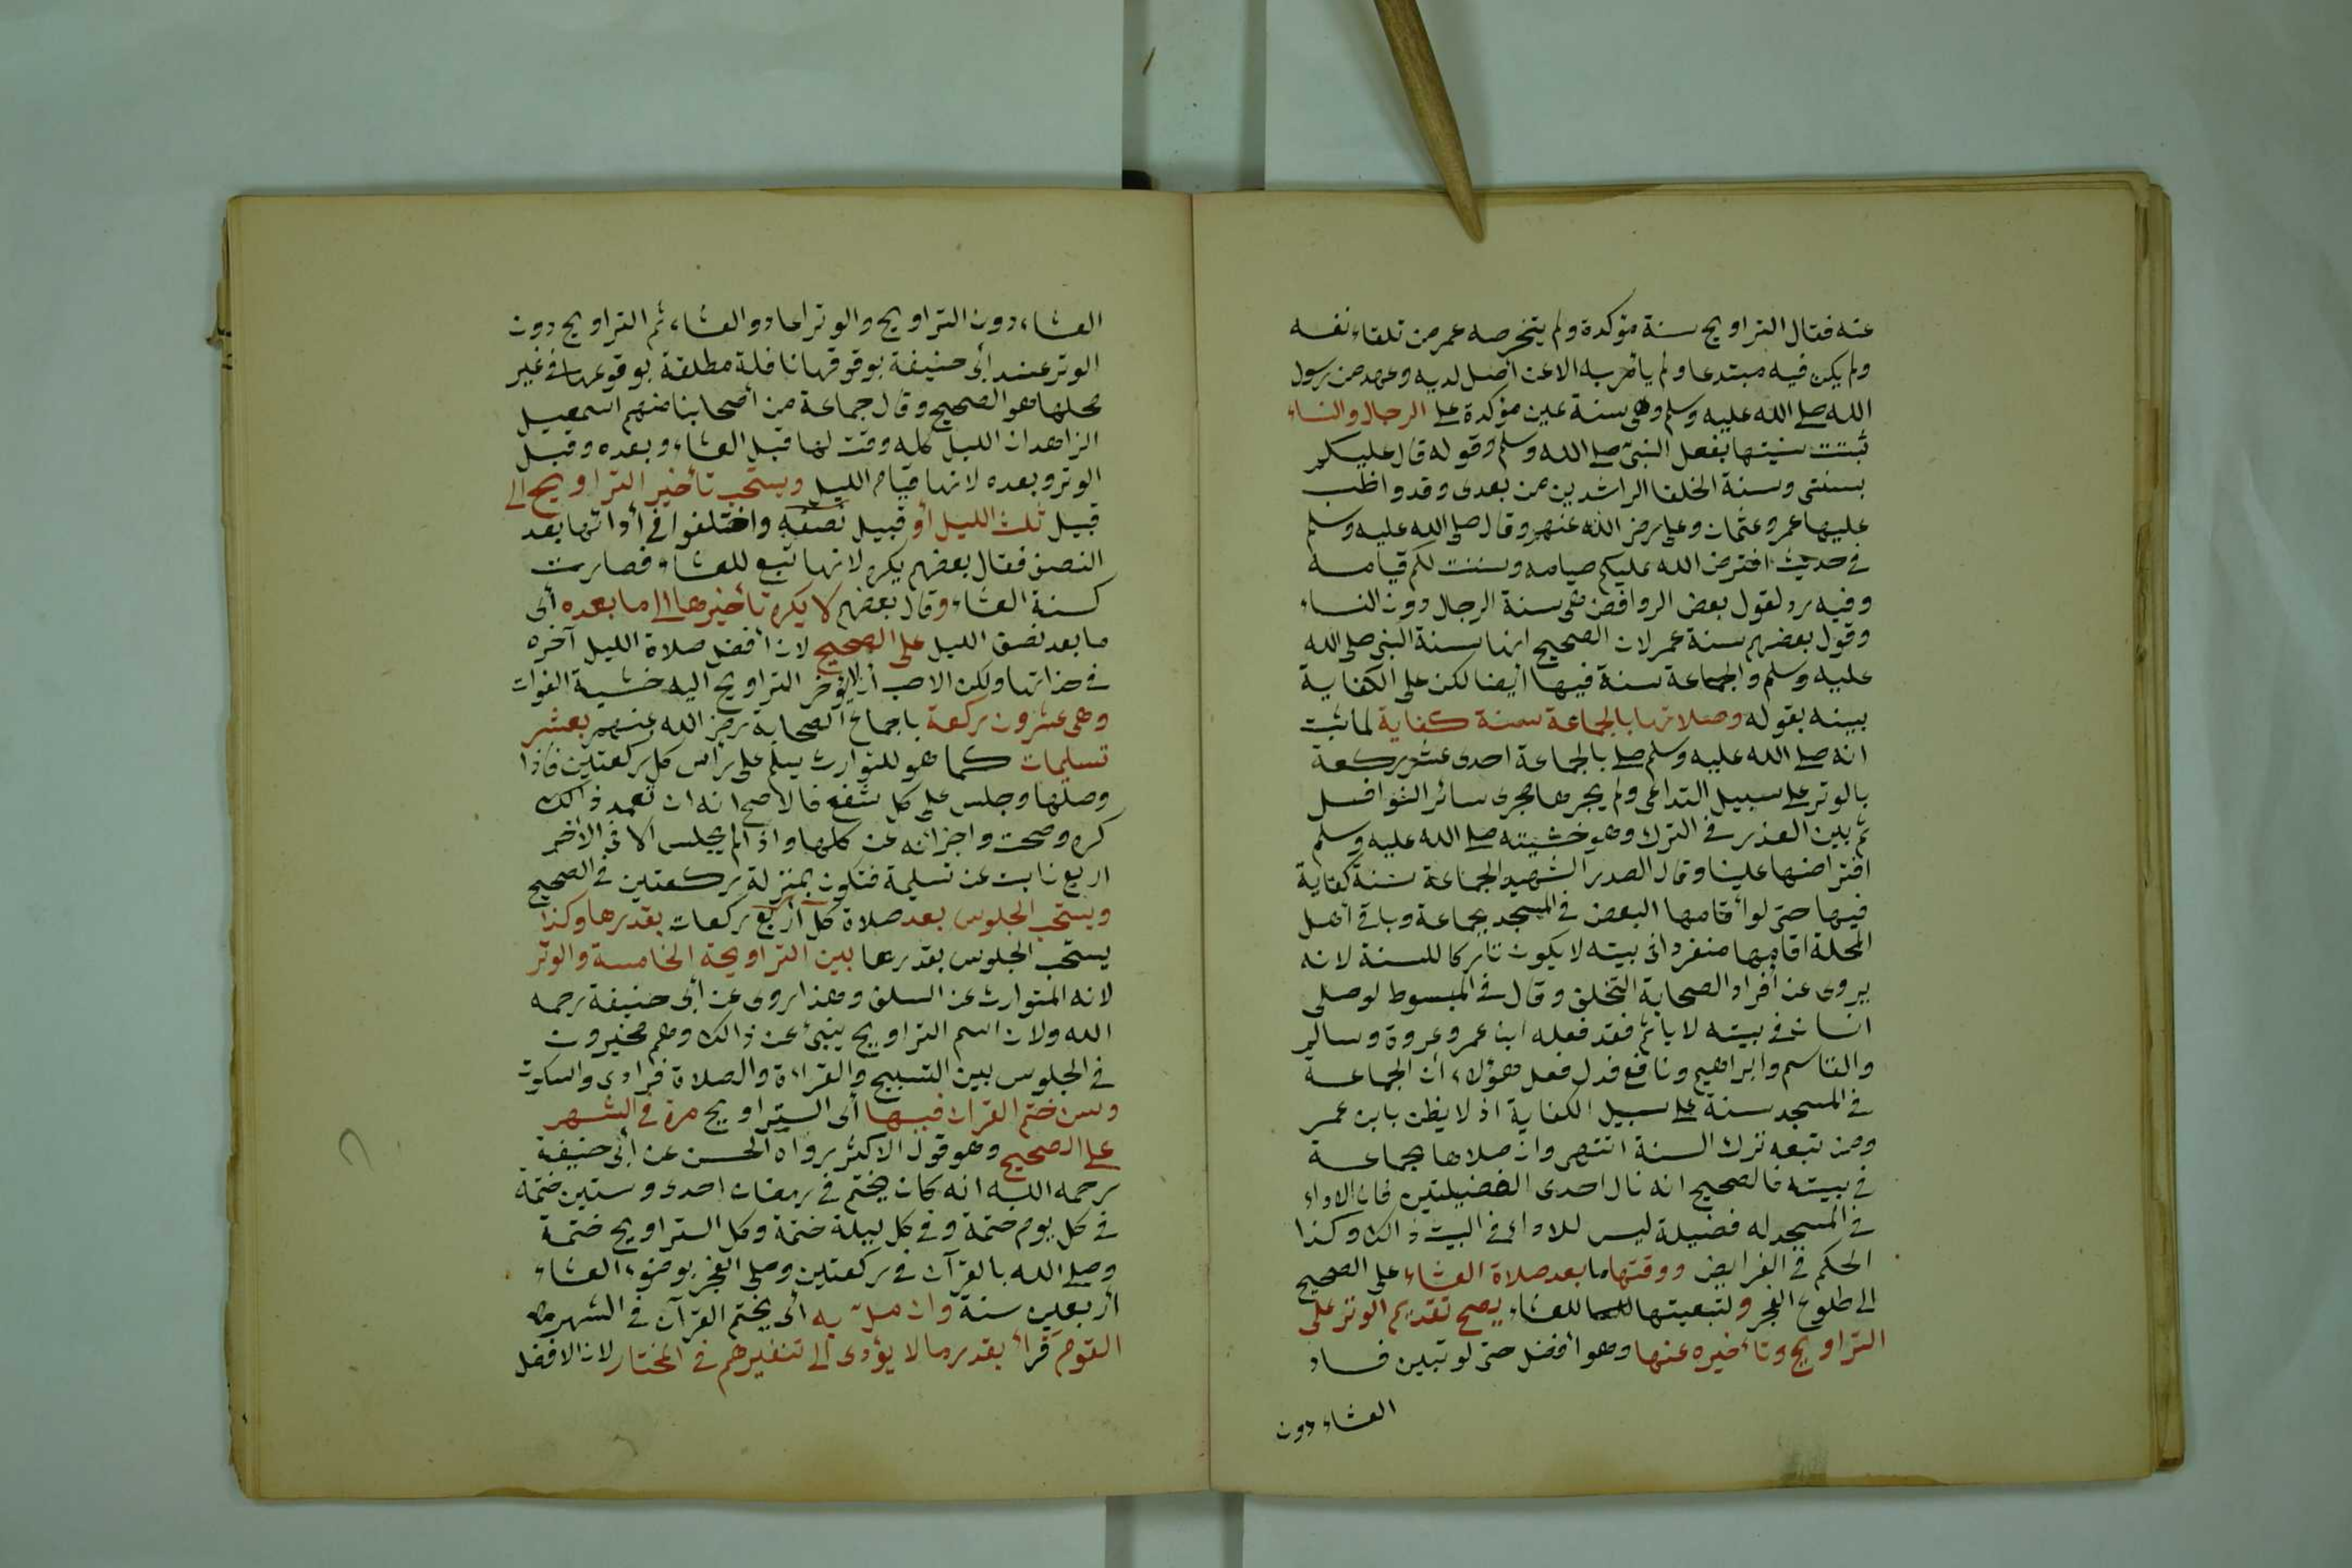 عنه فقال التراويح سنة مؤكدة ولم يتخرصه عمر من تلقاء نفسه
ولم يكن فيه مبتدعا ولم يأمر به الا عن أصل لديه وعهد من رسول
الله صلى الله عليه وسلم وهى سنة عين مؤكدة على الرجال والنساء
ثبتت سنيتها بفعل النبى صلى الله وسلم وقوله قال عليكم
بسنتى وسنة الخلفا الراشدين من بعدى وقد واظب
عليها عمر وعثمان وعلى رضى الله عنهم وقال صلى الله عليه وسلم
فى حديث افترض الله عليكم صيامه وسننت لكم قيامه
وفيه رد لقول بعض الروافض هى سنة الرجال دون النساء
وقول بعضهم سنة عمر لان الصحيح انها سنة النبى صلى الله
عليه وسلم والجماعة سنة فيها أيضا لكن على الكفاية
بينه بقوله وصلاتها بالجماعة سنة كفاية لما ثبت
انه صلى الله عليه وسلم صلى بالجماعة احدى عشر ركعة
بالوتر على سبيل التداعى ولم يجرها مجرى سائر النوافل
ثم بين العذر فى الترك وهو خشيته صلى الله عليه وسلم
افتراضها علينا وقال الصدر الشهيد الجماعة سنة كفاية
فيها حتى لو أقامها البعض فى المسجد بجماعة وباقى أهل
المحلة اقامها منفردا فى بيته لا يكون تاركا للسنة لانه
يروى عن أفراد الصحابة التخلف وقال فى المبسوط لو صلى
انسان فى بيته لا يأثم فقد فعله ابن عمر وعروة وسالم
والقاسم وابراهيم ونافع فدل فعل هؤلاء أن الجماعة
فى المسجد سنة على سبيل الكفاية اذ لا يظن بابن عمر
ومن تبعه ترك السنة انتهى وان صلاها بجماعة
فى بيته فالصحيح انه نال احدى الفضيلتين فان الاداء
فى المسجد له فضيلة ليس للاداء فى البيت ذالك وكذا
الحكم فى الفرايض ووقتها ما بعد صلاة العشاء على الصحيح
الى طلوع الفجر ولتبعيتها للعشاء يصح تقديم الوتر على
التراويح وتأخيره عنها وهو أفضل حتى لو تبين فساد
العشاء دون
العشاء دون التراويح والوتر اعادوا العشاء ثم التراويح دون
الوتر عند أبى حنيفة بوقوعها نافلة مطلقة بوقوعها فى غير
محلها هو الصحيح وقال جماعة من أصحابنا منهم اسمعيل
الزاهد ان الليل كله وقت لها قبل العشاء وبعده وقبل
الوتر وبعده لانها قيام الليل ويستحب تأخير التراويح الى
قبيل ثلث الليل أو قبيل نصفه واختلفوا فى أدائها بعد
النصف فقال بعضهم يكره لانها تبع للعشاء فصارت
كسنة العشاء وقال بعضهم لا يكره تأخيرها الى ما بعده أى
ما بعد نصف الليل على الصحيح لان أفضل صلاة الليل آخره
فى حذاتها ولكن الاحب أن لا يؤخر التراويح اليه خشية الفوات
وهى عشرون ركعة باجماع الصحابة رضى الله عنهم بعشر
تسليمات كما هو للتوارث يسلم على رأس كل ركعتين فاذا
وصلها وجلس على كل شفع فالاصح انه ان تعمد ذالك
كره وصحت واجزأته عن كلها واذا لم يجلس الا فى الاخر
اربع نابت عن تسليمة فتكون بمنزلة ركعتين فى الصحيح
ويستحب الجلوس بعد صلاة كل أربع ركعات بقدرها وكذا
يستحب الجلوس بقدرها بين الترويحة الخامسة والوتر
لانه المتوارث عن السلف وهذا روى عن أبى حنيفة رحمه
الله ولان اسم التراويح ينبئ عن ذالك وهم مخيرون
فى الجلوس بين التسبيح والقراءة والصلاة فرادى والسكوت
وسن ختم القران فيها أى التراويح مرة فى الشهر
على الصحيح وهو قول الاكثر رواه الحسن عن أبى حنيفة
رحمه الله انه كان يختم فى رمضان احدى وستين ختمة
فى كل يوم ختمة وفى كل ليلة ختمة وكل التراويح ختمة
وصلى الله بالقرآن فى ركعتين وصلى الفجر بوضوء العشاء
أربعين سنة وان مل به أى يختم القرآن فى الشهر
القوم قرأ بقدر ما لا يؤدى الى تنفيرهم فى المختار لان الافضل